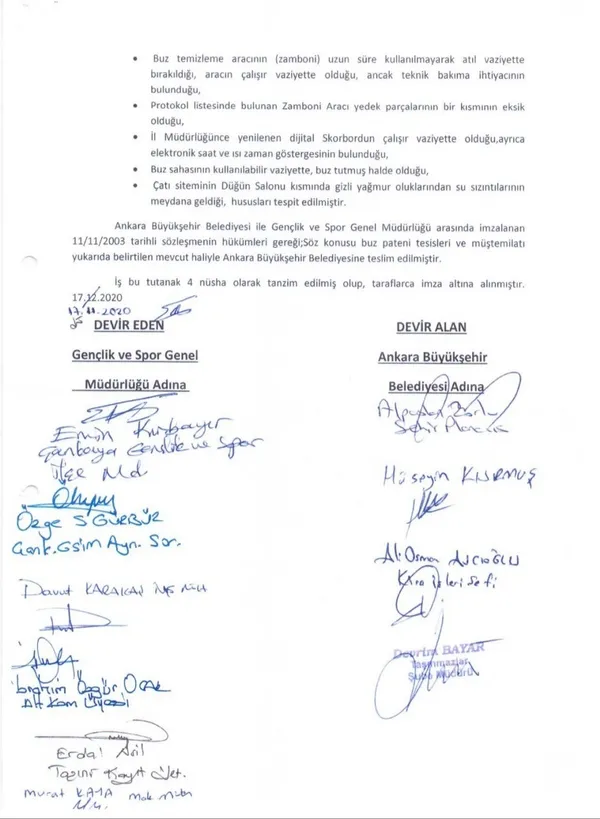 • Buz temizleme aracının (zamboni) uzun süre kullanılmayarak atıl vaziyette
bırakıldığı, aracın çalışır vaziyette olduğu, ancak teknik bakıma ihtiyacının
bulunduğu,
• Protokol listesinde bulunan Zamboni Aracı yedek parçalarının bir kısmının eksik
olduğu,
• İl Müdürlüğünce yenilenen dijital Skorbordun çalışır vaziyette olduğu,ayrıca
elektronik saat ve ısı zaman göstergesinin bulunduğu,
• Buz sahasının kullanılabilir vaziyette, buz tutmuş halde olduğu,
• Çatı siteminin Düğün Salonu kısmında gizli yağmur oluklarından su sızıntılarının
meydana geldiği, hususları tespit edilmiştir.
Ankara Büyükşehir Belediyesi ile Gençlik ve Spor Genel Müdürlüğü arasında imzalanan
11/11/2003 tarihli sözleşmenin hükümleri gereği;Söz konusu buz pateni tesisleri ve müştemilatı
yukarıda belirtilen mevcut haliyle Ankara Büyükşehir Belediyesine teslim edilmiştir.
İş bu tutanak 4 nüsha olarak tanzim edilmiş olup, taraflarca imza altına alınmıştır.
17.12.2020
17.11.2020
DEVİR EDEN
Gençlik ve Spor Genel
Müdürlüğü Adına
Emin
Gençlik ve Spor
İlçe Md.
Özge S GÜRBÜR
Gsim Ayn. Sor.
Davut
İbrahim Özgür
Alt Kom Üyesi
Erdal
Kayıt
Murat KAYA
DEVİR ALAN
Ankara Büyükşehir
Belediyesi Adına
Hüseyin
Ali Osman AVCIOĞLU
Devrim BAYAR
Taşınmazlar
Şube Müdürü